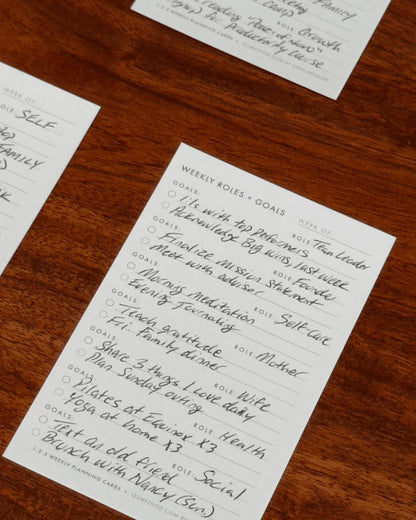 eting
FAMILY
Camp
ROLE: Growth
Reading "Power of Now"
for Productivity Course
1-2-3 WEEKLY PLANNING CARDS • 123METHOD.COM BY
WEEK OF:
ROLE: SELF
FAMILY
WEEKLY ROLES + GOALS
WEEK OF:
GOALS:
ROLE: Team Leader
1:1s with top performers
Acknowledge Big wins last week
GOALS:
ROLE: Founder
Finalize mission statement
Meet with adviser
GOALS:
ROLE: Self-Care
Morning meditation
Evening Journaling
GOALS:
ROLE: Mother
Teach gratitude
Fri. Family dinner
GOALS:
ROLE: Wife
Share 3 things I love daily
Plan Sunday outing
GOALS:
ROLE: Health
Pilates at Equinox X3
Yoga at home X3
GOALS:
ROLE: Social
Text an old friend
Brunch with Nancy (Sun)
1-2-3 WEEKLY PLANNING CARDS • 123METHOD.COM BY